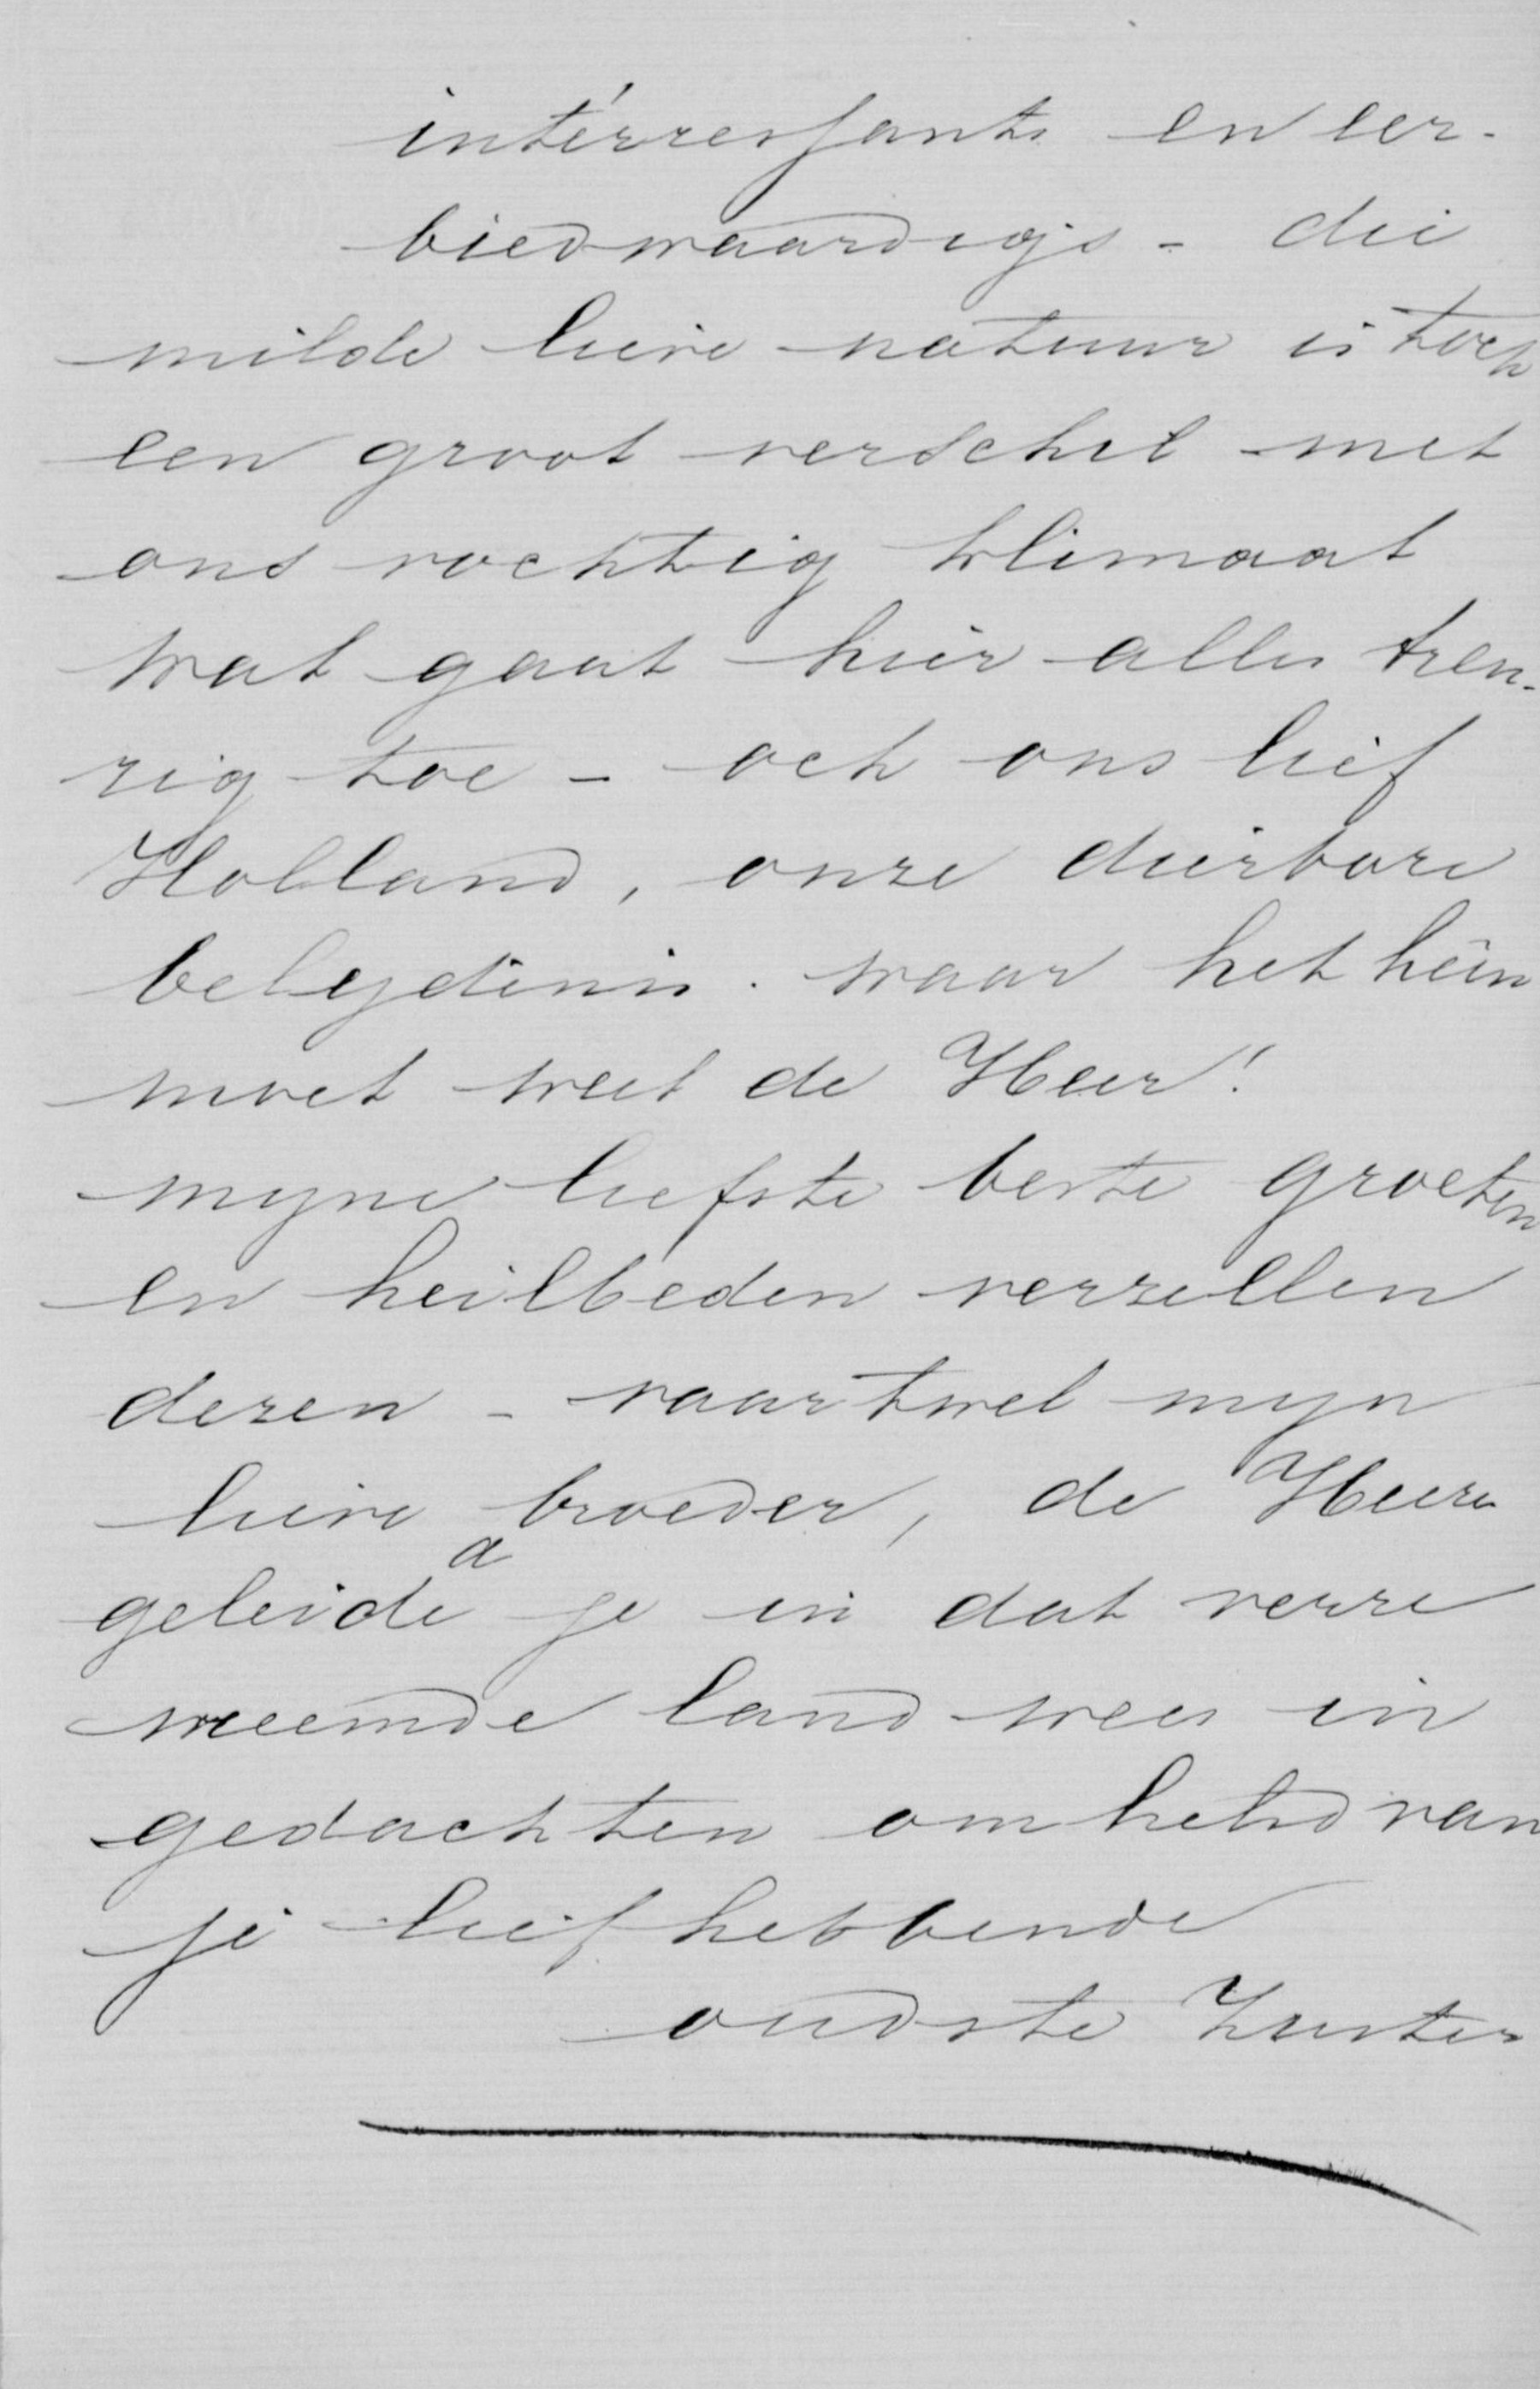 intérressants en eer-
biedwaardigs - die
milde lieve natuur is toch
een groot verschil met
ons vochtig klimaat
wat gaat hier alles treu-
rig toe - och ons lief
Holland, onze dierbare
belydenis. waar het heen
moet weet de Heer!
myne liefste beste groeten
en heilbeden verzellen
dezen - vaartwel myn
lieve broeder, de Heere
geleide a je in dat verre
vreemde land wees in
gedachten omhelsd van
je liefhebbende
oudste Zuster